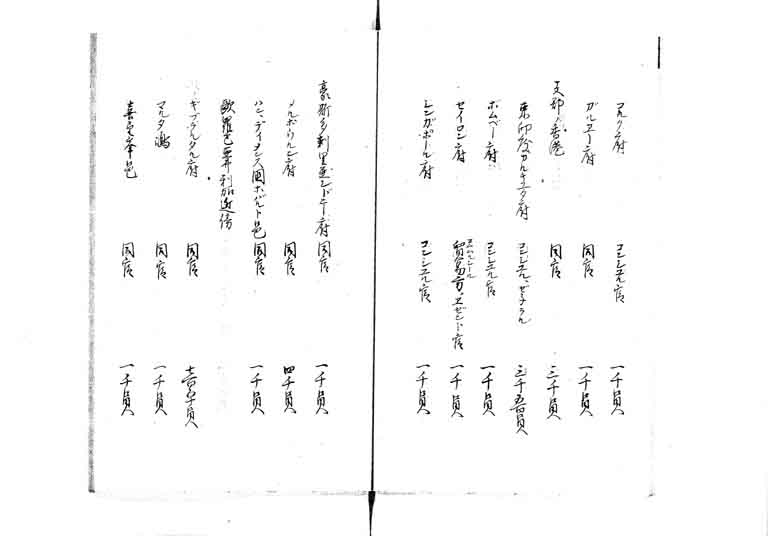 コルク府　コンシユル官　一千員
ガルユー府　同官　一千員
支那ノ香港　同官　三千員
東印度カルキユタ府　コンシユル、ゼネラル　三千五百員
ボムベー府　コンシユル官　一千員
セイロン府　貿易方、エゼント官　一千員
シンガポール府　コンシユル官　一千員
豪斯多剌里亜シドニー府　同官　一千員
メルボウルン府　同官　四千員
ハン、ディメンス国ホバルト邑　同官　一千員
欧羅巴並亜弗利加近傍
ギブラルタル府　同官
マルタ島　同官　一千員
喜望峯邑　同官　一千員